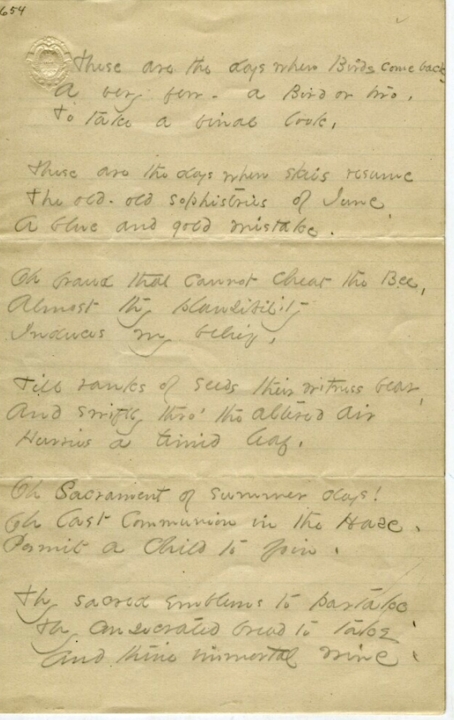 654
These are the days when Birds come back
A very few - a Bird or two,
To take a final look.
These are the days when skies resume
The old - old sophistries of June
A blue and gold mistake.
Oh fraud that cannot cheat the Bee,
Almost thy plausibility
Induces my belief,
Till ranks of seeds their witness bear,
And swiftly thro' the altered air
Hurries a timid leaf.
Oh Sacrament of summer days!
Oh Last Communion in the Haze.
Permit a Child to join.
Thy sacred emblems to partake
Thy consecrated bread to take
And thine immortal wine.